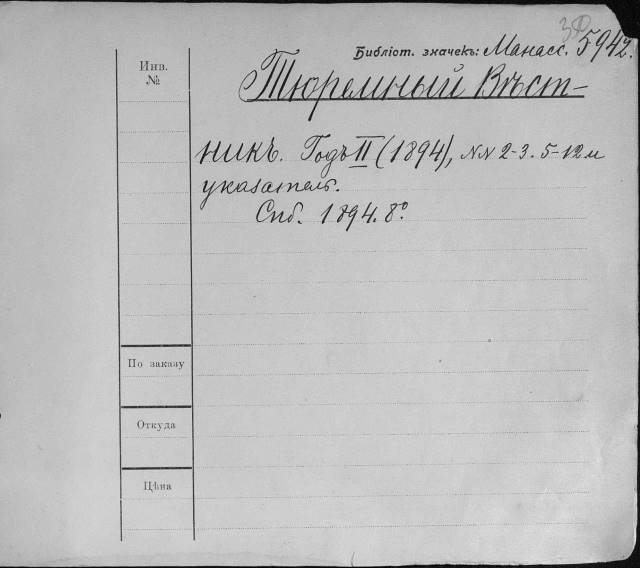 Библіот. значекъ: Манасс. 5942.
Инв.
№
Тюремный Вѣст-
никъ. Годъ II (1894), NN 2-3. 5-12 и
указатель.
Спб. 1894. 8°
По заказу
Откуда
Цѣна